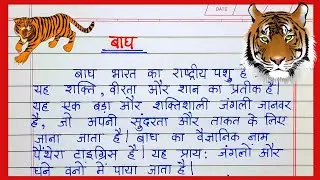 DATE
बाघ
बाघ भारत का राष्ट्रीय पशु है
यह शक्ति, वीरता और शान का प्रतीक है।
यह एक बड़ा और शक्तिशाली जंगली जानवर
है, जो अपनी सुंदरता और ताकत के लिए
जाना जाता है। बाघ का वैज्ञानिक नाम
पैंथेरा टाइग्रिस है। यह प्रायः जंगलों और
घने वनों में पाया जाता है।